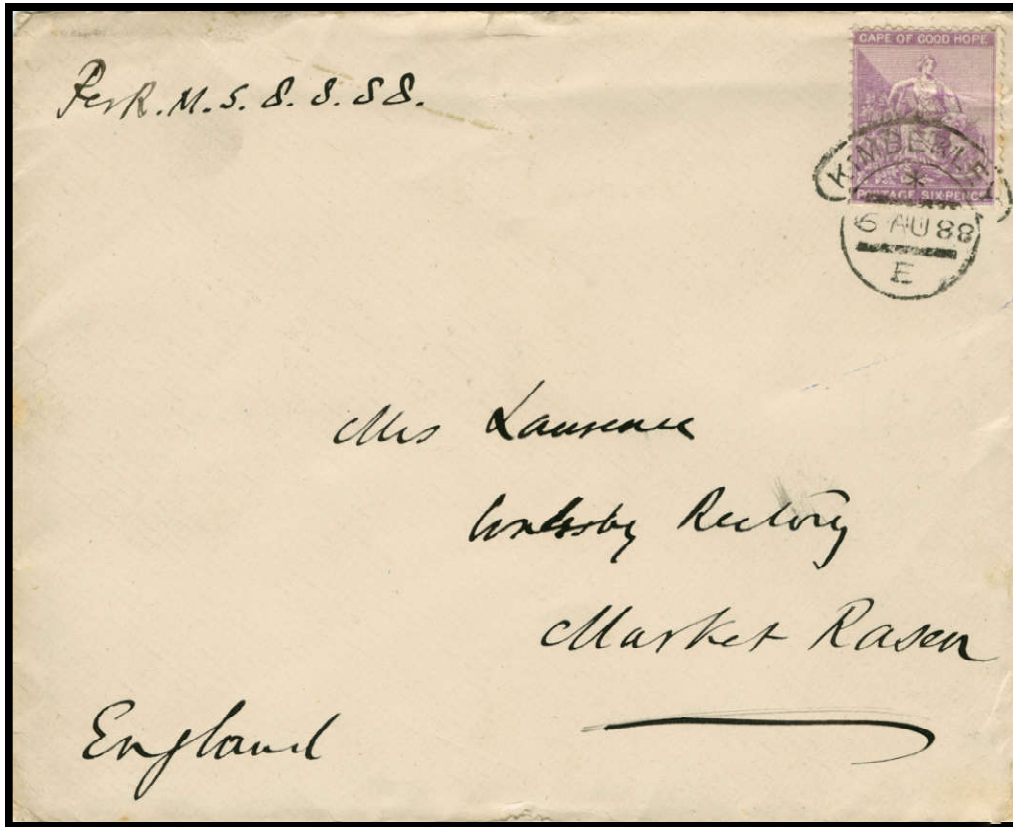 Per R.M.S. 8.8.88.
CAPE OF GOOD HOPE
POSTAGE SIX-PENCE
KIMBERLEY
6 AU 88
E
Mrs Lawrence
Walesby Rectory
Market Rasen
England